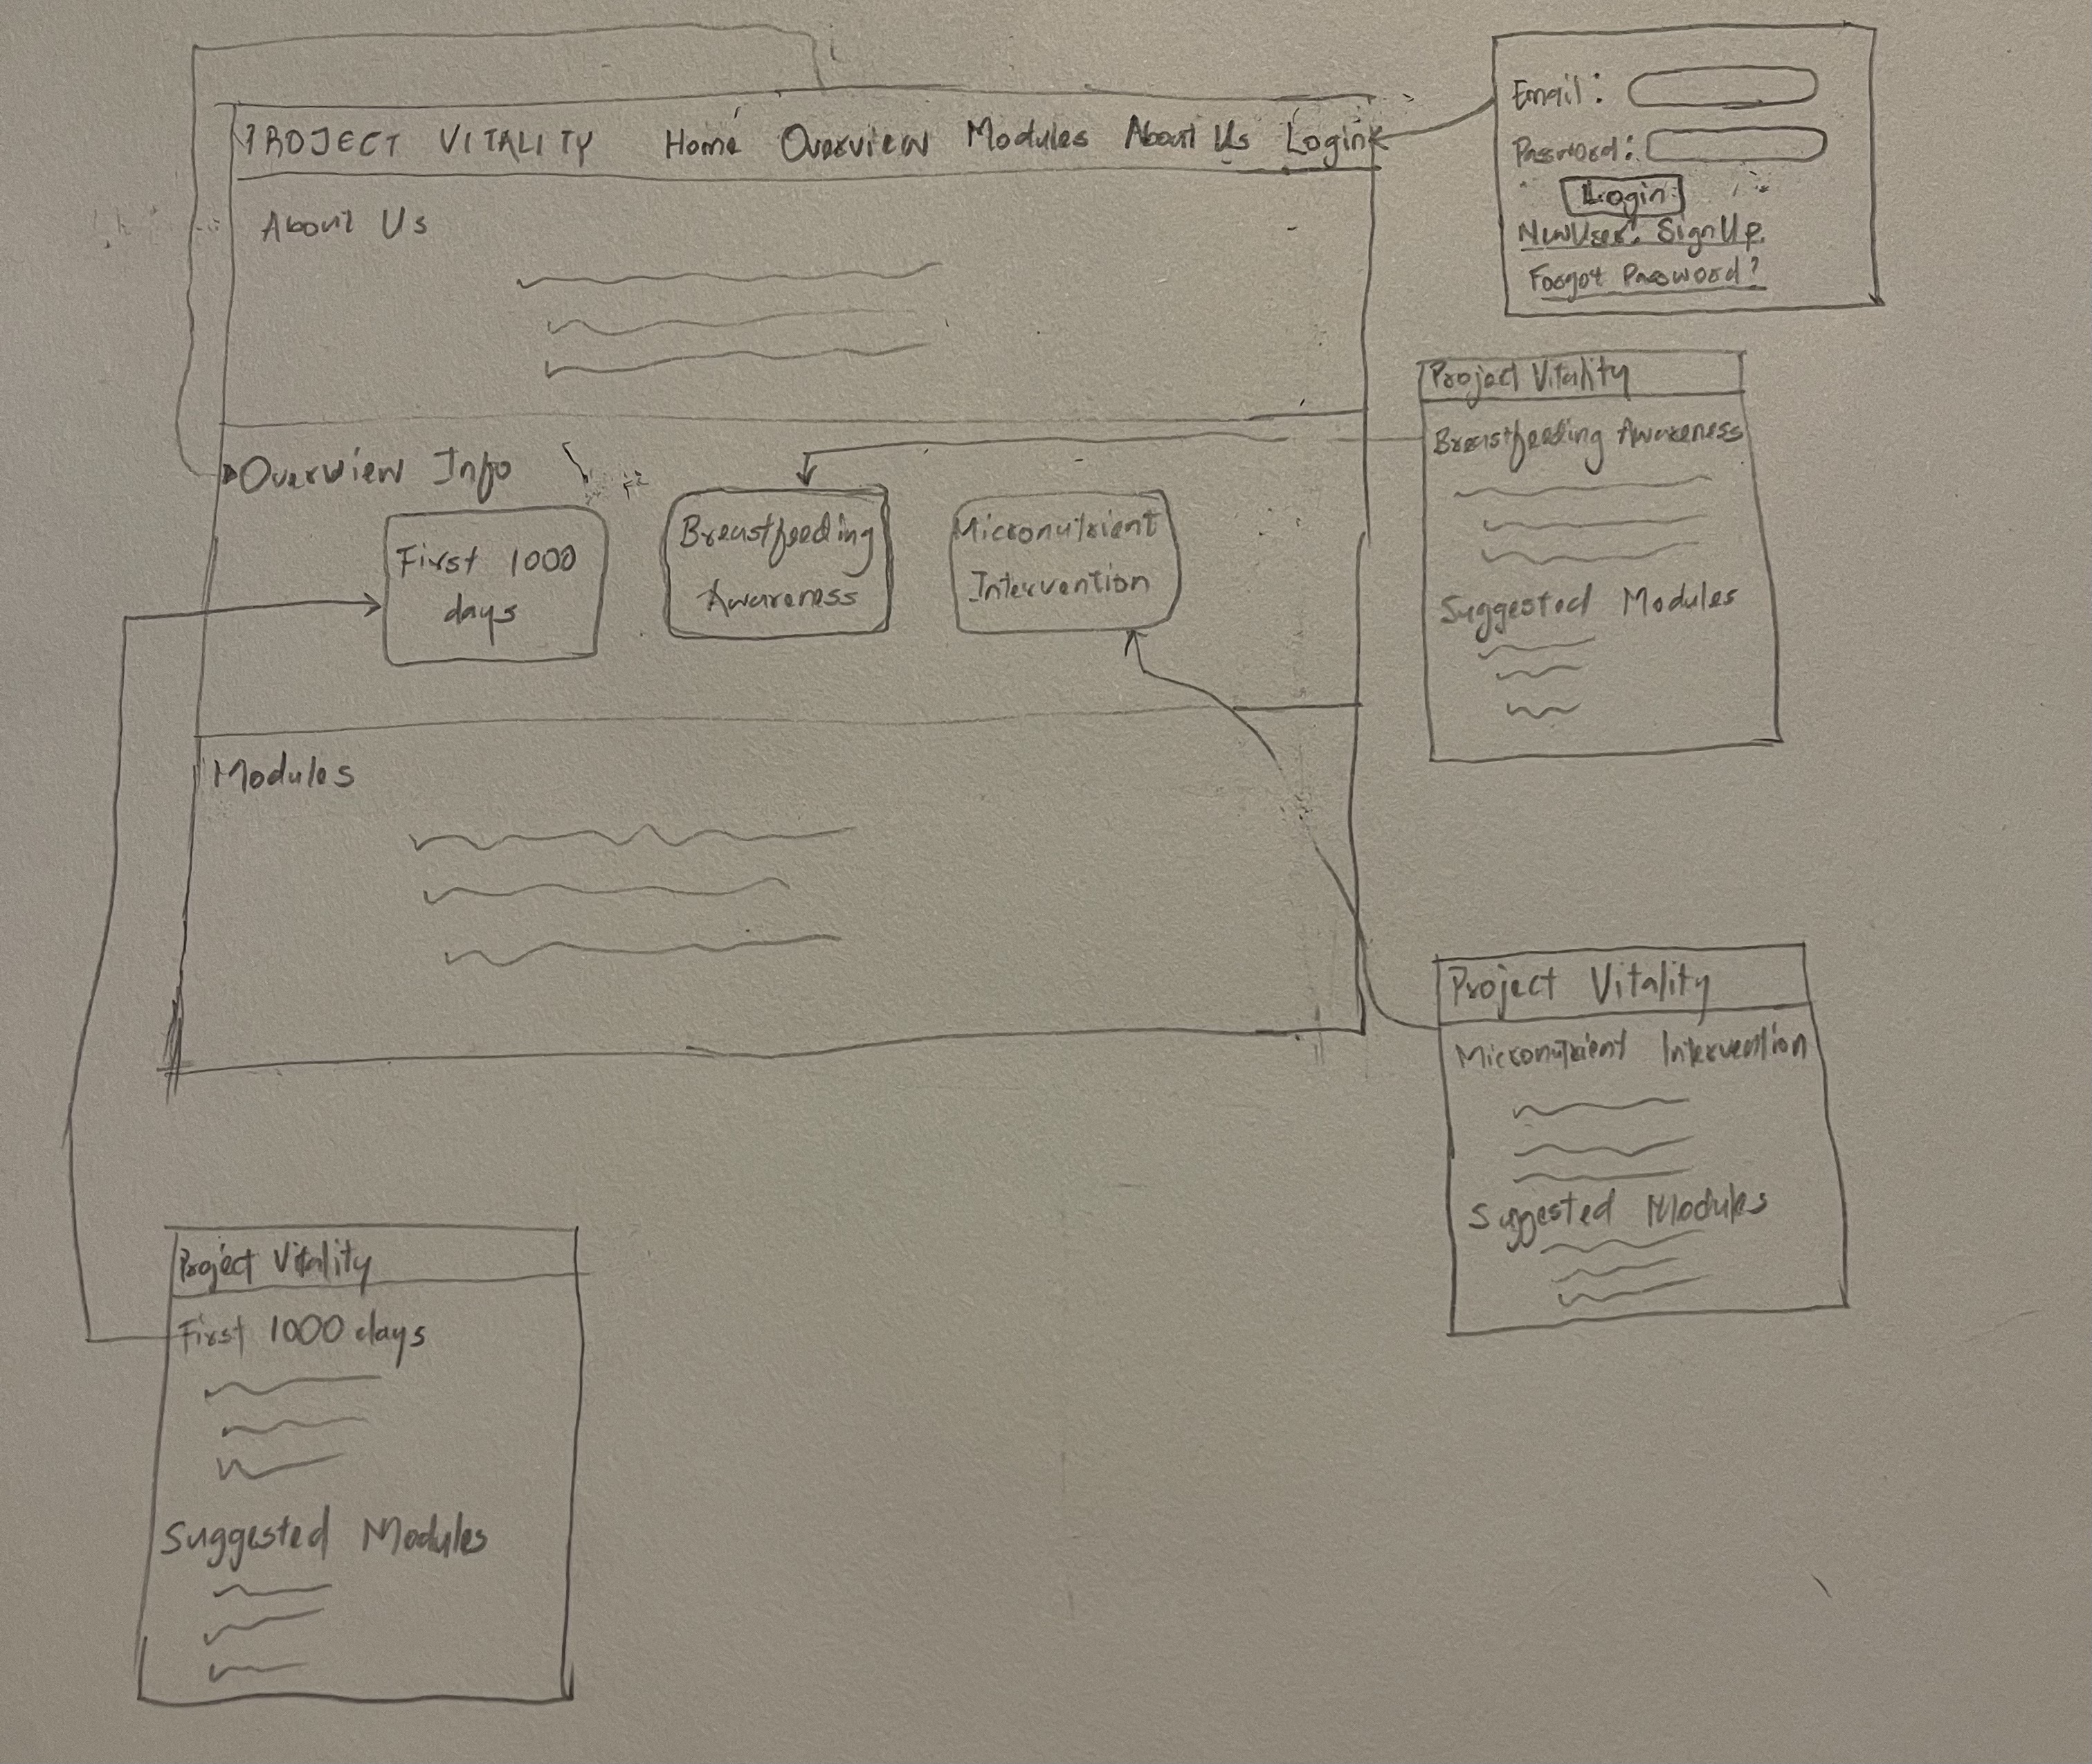 PROJECT VITALITY Home Overview Modules About Us Login
About Us
Overview Info
First 1000
days
Breastfeeding
Awareness
Micronutrient
Intervention
Modules
Email:
Password:
Login
New User? Sign Up
Forgot Password?
Project Vitality
Breastfeeding Awareness
Suggested Modules
Project Vitality
Micronutrient Intervention
Suggested Modules
Project Vitality
First 1000 days
Suggested Modules